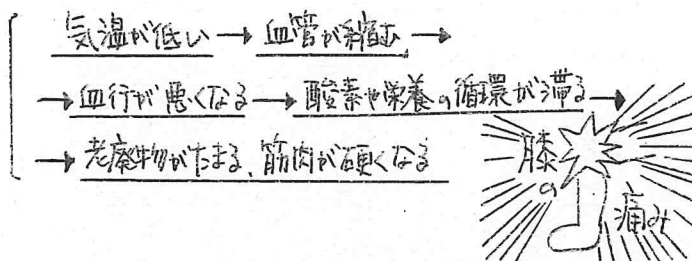 気温が低い→血管が縮む→
→血行が悪くなる→酸素や栄養の循環が滞る→
→老廃物がたまる、筋肉が硬くなる
膝の痛み